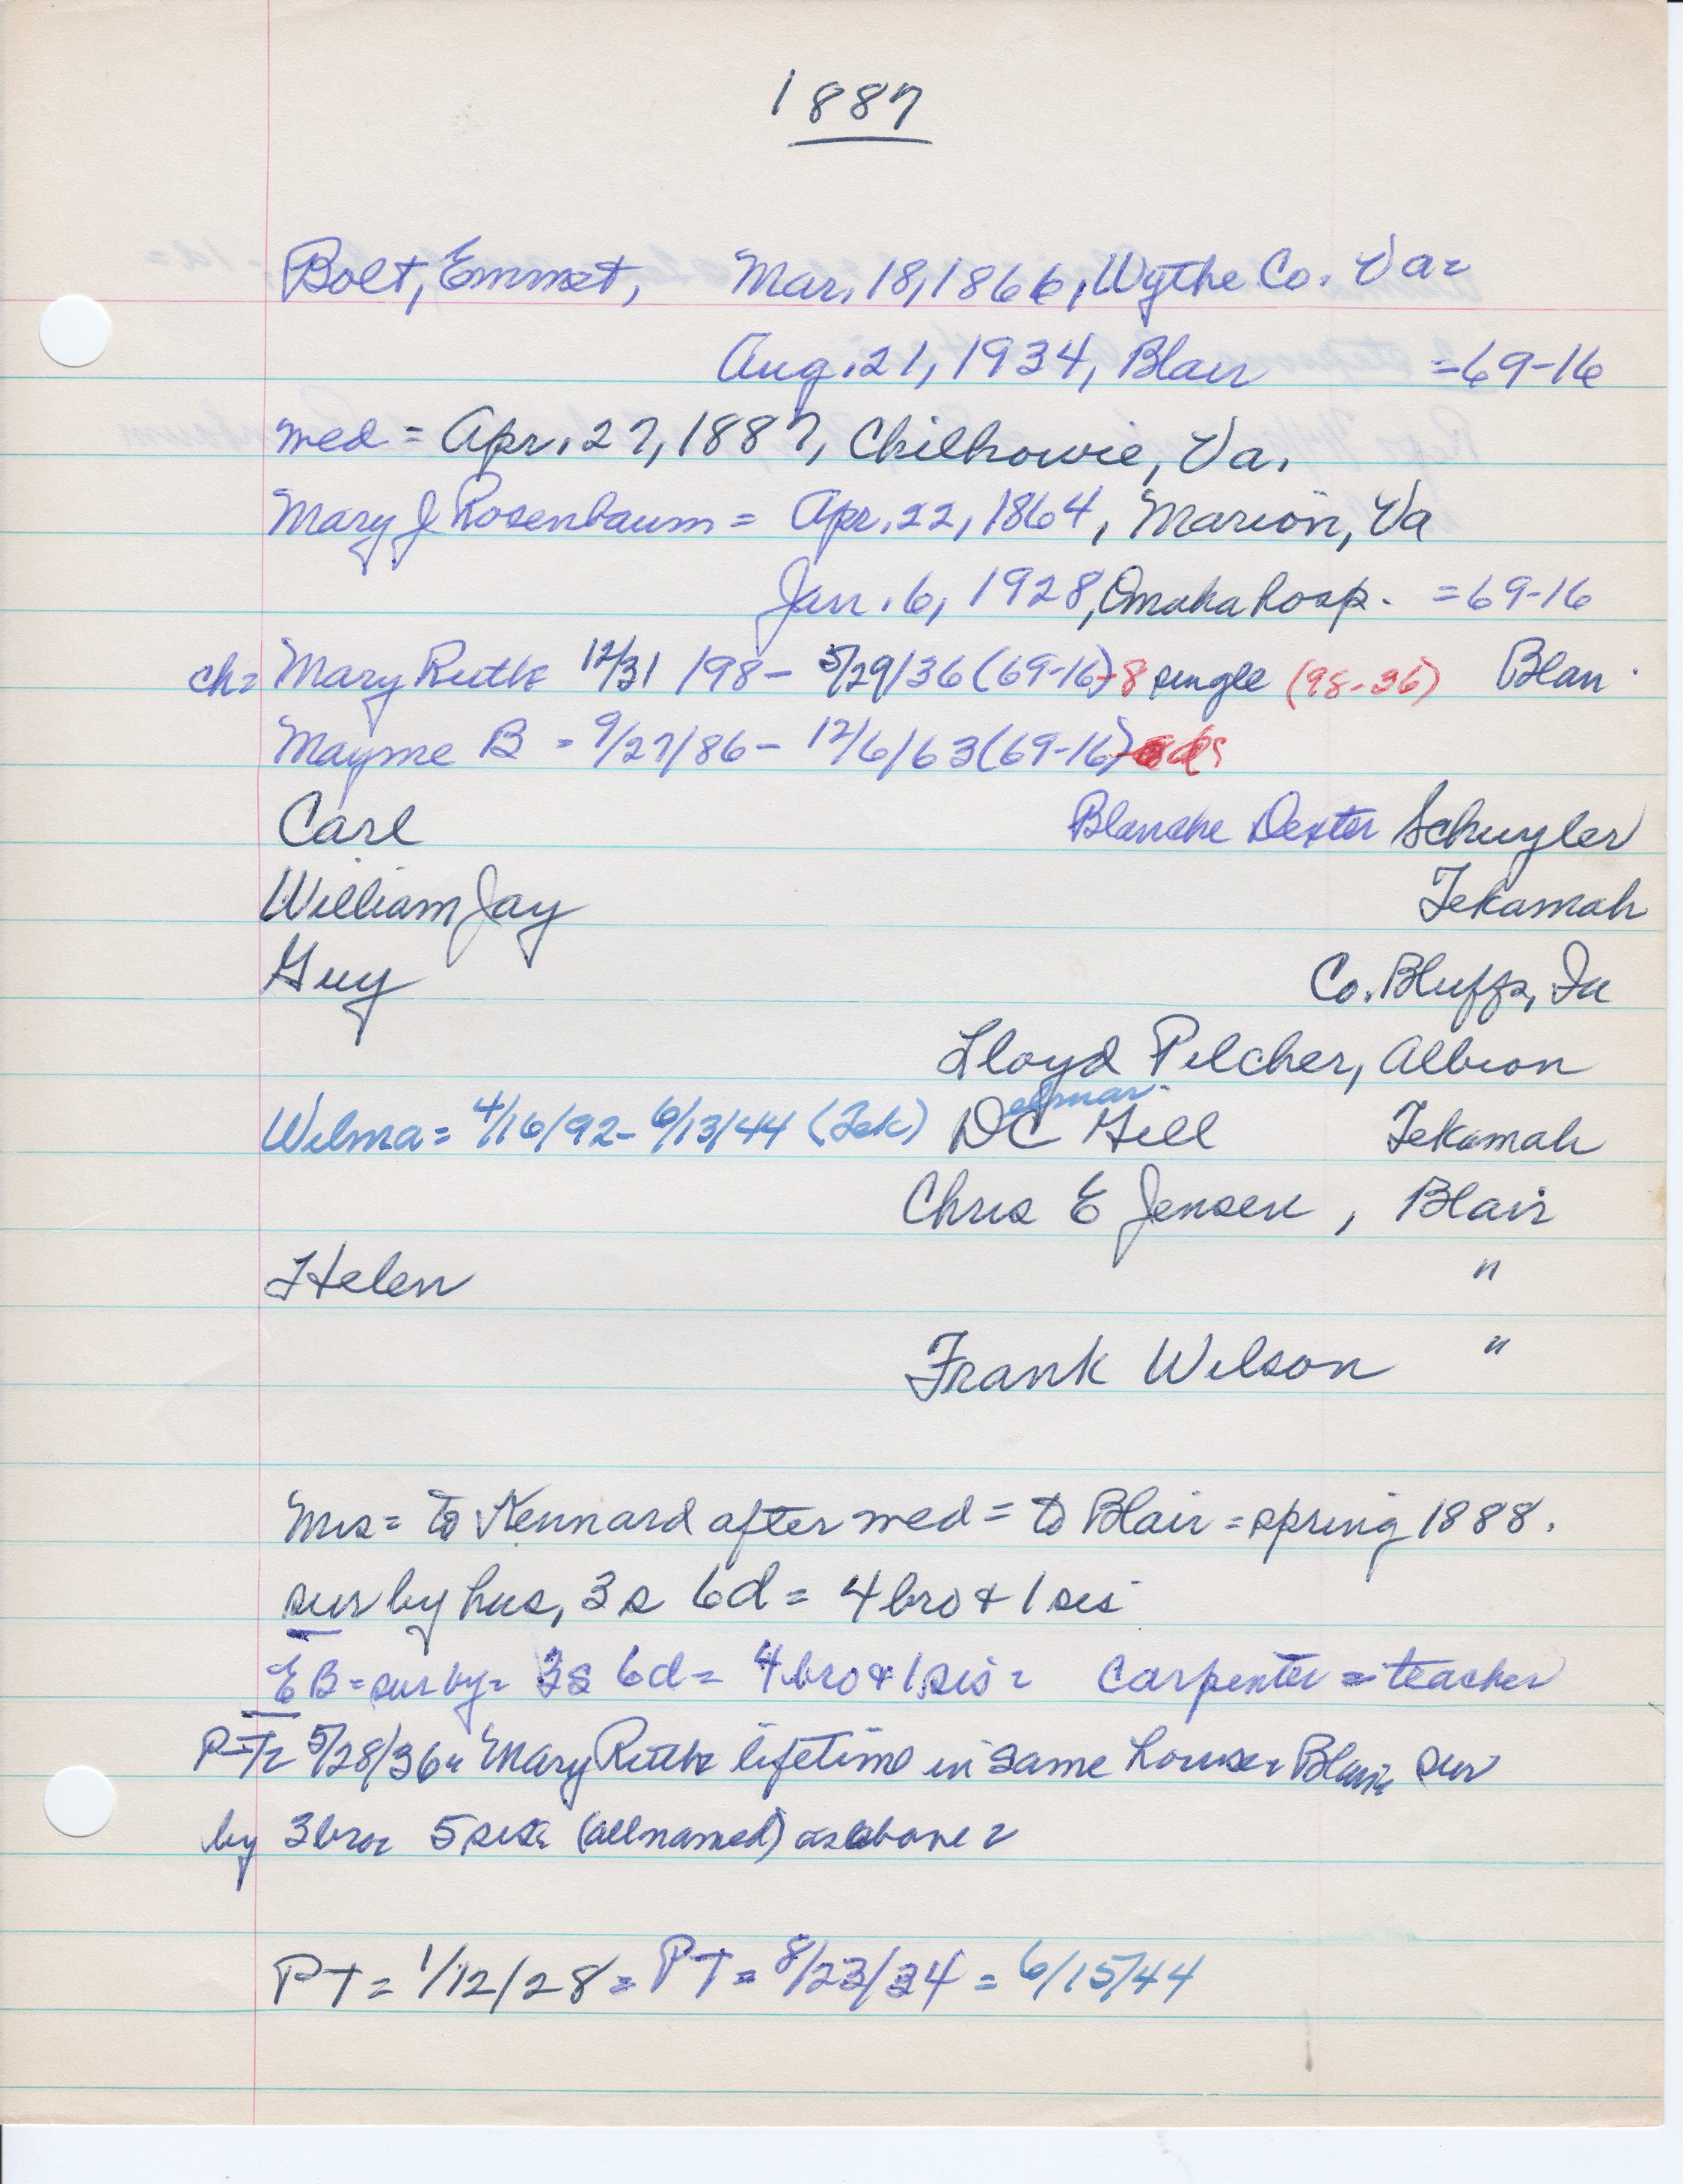 1887
Bolt, Emmet, Mar. 18, 1866, Wythe Co. Va =
Aug. 21, 1934, Blair = 69-16
med = Apr. 27, 1887, Chilhowie, Va.
Mary J Rosenbaum = Apr. 22, 1864, Marion, Va
Jan. 6, 1928, Omaha hosp. = 69-16
ch = Mary Ruth 12/31/98 - 5/29/36 (69-16)-8 single (98-36) Blair
Mayme B = 9/27/86 - 12/6/63 (69-16)
Carl Blanche Dexter Schuyler
William Jay Tekamah
Guy Co. Bluffs, Ia
Lloyd Pilcher, Albion
elmar
Wilma = 4/16/92 - 6/13/44 (Tek) DC Gill Tekamah
Chris E Jensen, Blair
Helen "
Frank Wilson "
Mrs = to Kennard after med = to Blair = spring 1888.
sur by hus, 3 s 6d = 4 bro + 1 sis
EB = sur by = 3s 6d = 4 bro + 1 sis = carpenter = teacher
PT = 5/28/36 = Mary Ruth lifetime in same house = Blair sur
by 3 bro = 5 sis = (all named) as above =
PT = 1/12/28 = PT = 8/23/34 = 6/15/44